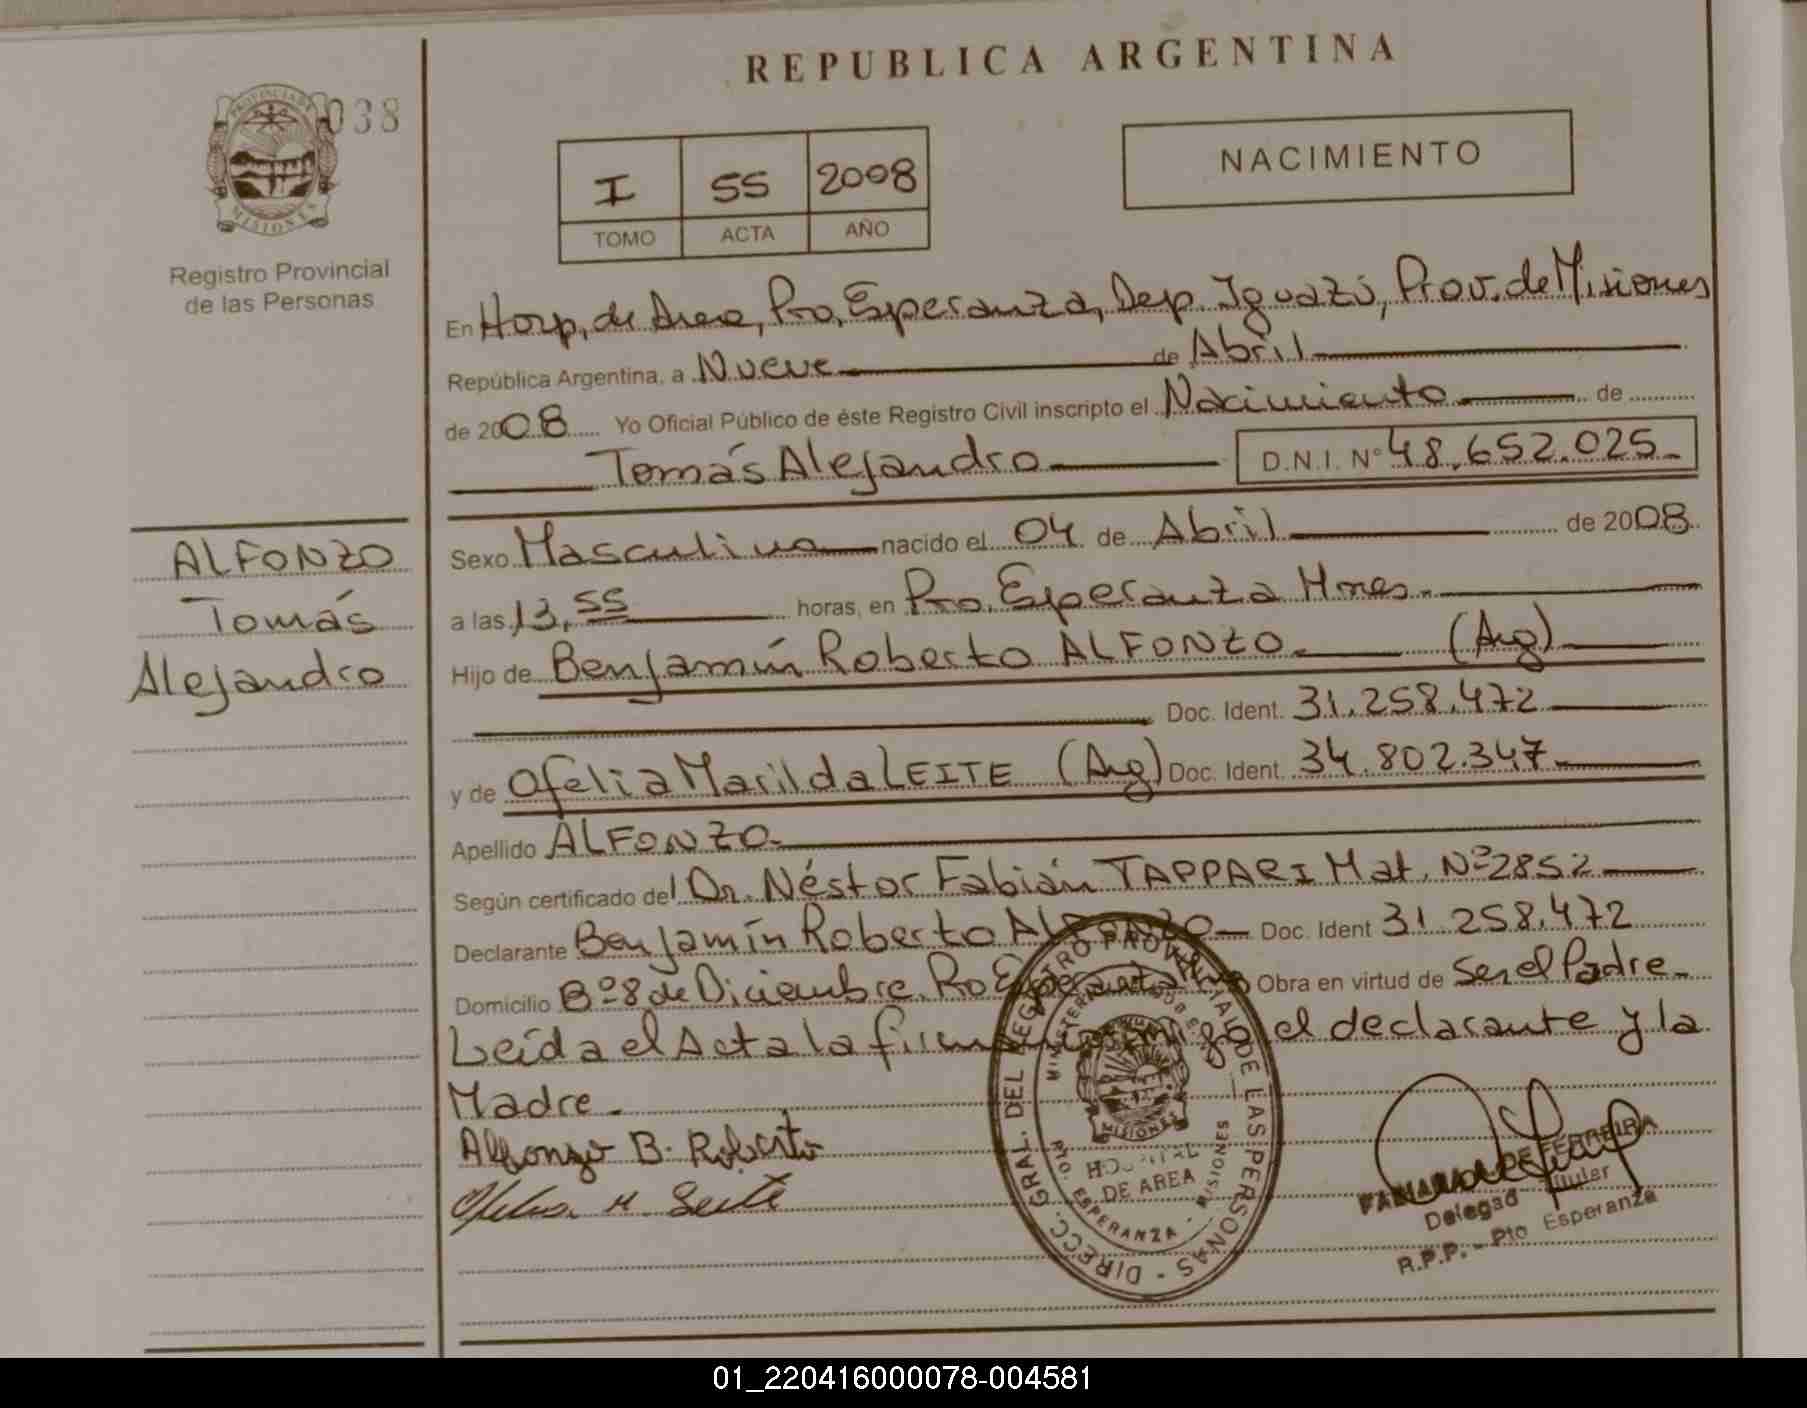 REPUBLICA ARGENTINA
038
PROVINCIA DE
MISIONES
Registro Provincial
de las Personas
I 55 2008
TOMO ACTA AÑO
NACIMIENTO
En Hosp. de Area, Pto. Esperanza, Dep. Iguazú, Prov. de Misiones
República Argentina, a Nueve de Abril
de 2008 Yo Oficial Público de éste Registro Civil inscripto el Nacimiento de
Tomás Alejandro D.N.I. N° 48.652.025.-
ALFONZO
Tomás
Alejandro
Sexo Masculino nacido el 04 de Abril de 2008
a las 13,55 horas, en Pto. Esperanza Mnes.
Hijo de Benjamín Roberto ALFONZO. (Arg)
Doc. Ident. 31.258.472
y de Ofelia Marilda LEITE (Arg) Doc. Ident. 34.802.347.
Apellido ALFONZO.
Según certificado del Dr. Néstor Fabián TAPPARI Mat. Nº 2852
Declarante Benjamín Roberto Alfonzo Doc. Ident 31.258.472
Domicilio Bº 8 de Diciembre, Pto Esperanza Obra en virtud de Ser el Padre.
Leída el Acta la firman conmigo el declarante y la
Madre.
Alfonzo B. Roberto
Ofelia M. Leite
DIRECC. GRAL. DEL REGISTRO PROVINCIAL DE LAS PERSONAS
MISIONES
HOSPITAL
DE AREA
PTO. ESPERANZA - MISIONES
DE FERREIRA
Delegad Titular
R.P.P. - Pto Esperanza
01_220416000078-004581